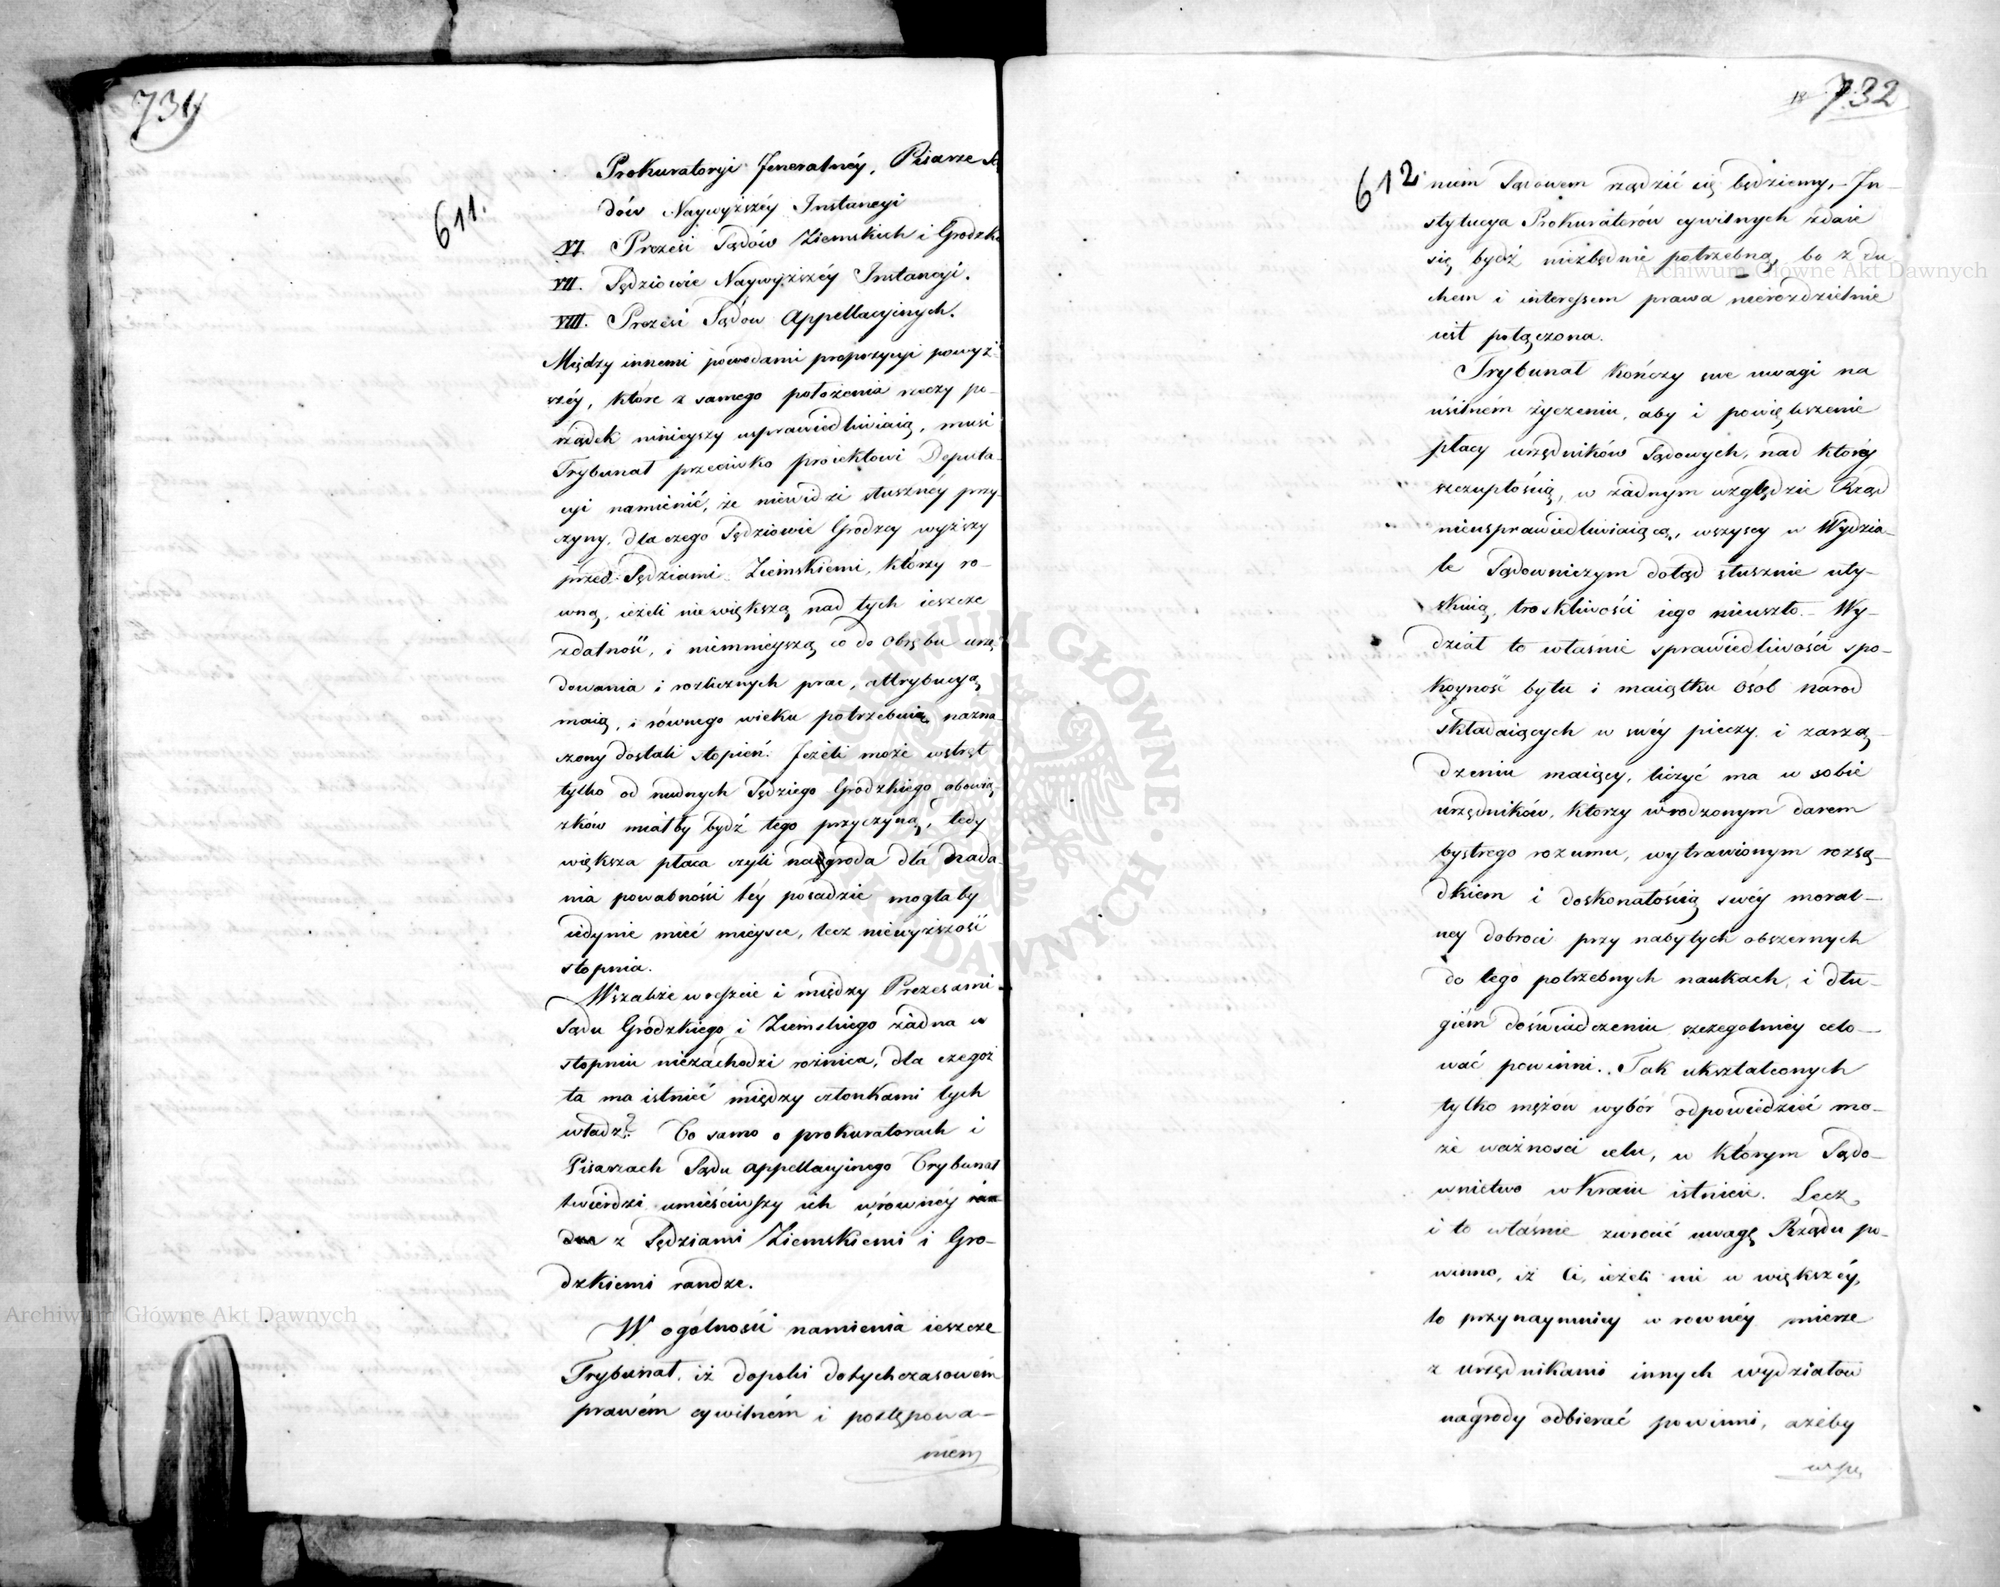 731
611.
Prokuratoryi Jeneralnéy, Pisarze Są
dów Naywyższéy Instancyi
VI. Prezesi Sądów Ziemskich i Grodzk
VII. Sędziowie Naywyższéy Instancyi.
VIII. Prezesi Sądów Appellacyinych.
Między innemi powodami propozycyi powyż
széy, które z samego położenia rzeczy po-
rządek ninieyszy usprawiedliwiaią, musi
Trybunał przeciwko proiektowi Deputa-
cyi namienić, że niewidzi słusznéy przy-
czyny, dla czego Sędziowie Grodzcy wyższy
przed Sędziami Ziemskiemi, którzy ro-
wną, ieżeli nie większą nad tych ieszcze
zdatność, i niemnieyszą co do obrębu urzę
dowania i rozlicznych prac, attrybucyą
maią, i równego wieku potrzebuią, nazna
czony dostali stopień. Jeżeli może wstręt
tylko od nudnych Sędziego Grodzkiego obowią
zków miałby bydź tego przyczyną, tedy
większa płaca czyli nadgroda dla nada-
nia powabności téy posadzie mogłaby
iedynie mieć mieysce, lecz niewyższość
stopnia.
Wszakże wreszcie i między Prezesami
Sądu Grodzkiego i Ziemskiego żadna w
stopniu niezachodzi rożnica, dla czegoż
ta ma istnieć między członkami tych
władz? To samo o prokuratorach i
Pisarzach Sądu appellacyinego Trybunał
twierdzi umieściwszy ich w równéy
z Sędziami Ziemskiemi i Gro-
dzkiemi randze.
W ogólności namienia ieszcze
Trybunał, iż dopóki dotychczasowém
prawém cywilném i postępowa-
niem
732
612
niem Sądowem rządzić się będziemy, In-
stytucya Prokuratorów cywilnych zdaie
się bydź niezbędnie potrzebną, bo z du
chem i interessem prawa nierozdzielnie
iest połączona.
Trybunał kończy swe uwagi na
usilném życzeniu, aby i powiększenie
płacy urzędników Sądowych, nad któréy
szczupłością, w żadnym względzie Rząd
nieusprawiedliwiaiącą, wszyscy w Wydzia-
le Sądowniczym dotąd słusznie uty-
skuią, troskliwości iego nieuszło. Wy-
dział to właśnie sprawiedliwości spo-
koyność bytu i maiątku osób naród
składaiących w swéy pieczy i zarzą-
dzeniu maiący, liczyć ma w sobie
urzędników, którzy wrodzonym darem
bystrego rozumu, wytrawionym rozsą-
dkiem i doskonałością swéy moral-
ney dobroci przy nabytych obszernych
do tego potrzebnych naukach, i dłu-
giém doświadczeniu szczególniey celo-
wać powinni. Tak ukształconych
tylko mężów wybór odpowiedzieć mo-
że ważności celu, w którym Sądo-
wnictwo w Kraiu istnieie. Lecz
i to właśnie zwrócić uwagę Rządu po-
winno, iż ci, ieżeli nie w większéy,
to przynaymniéy w rownéy mierze
z urzędnikami innych wydziałów
nagrody odbierać powinni, ażeby
Archiwum Główne Akt Dawnych
Archiwum Główne Akt Dawnych
ARCHIWUM GŁÓWNE AKT DAWNYCH